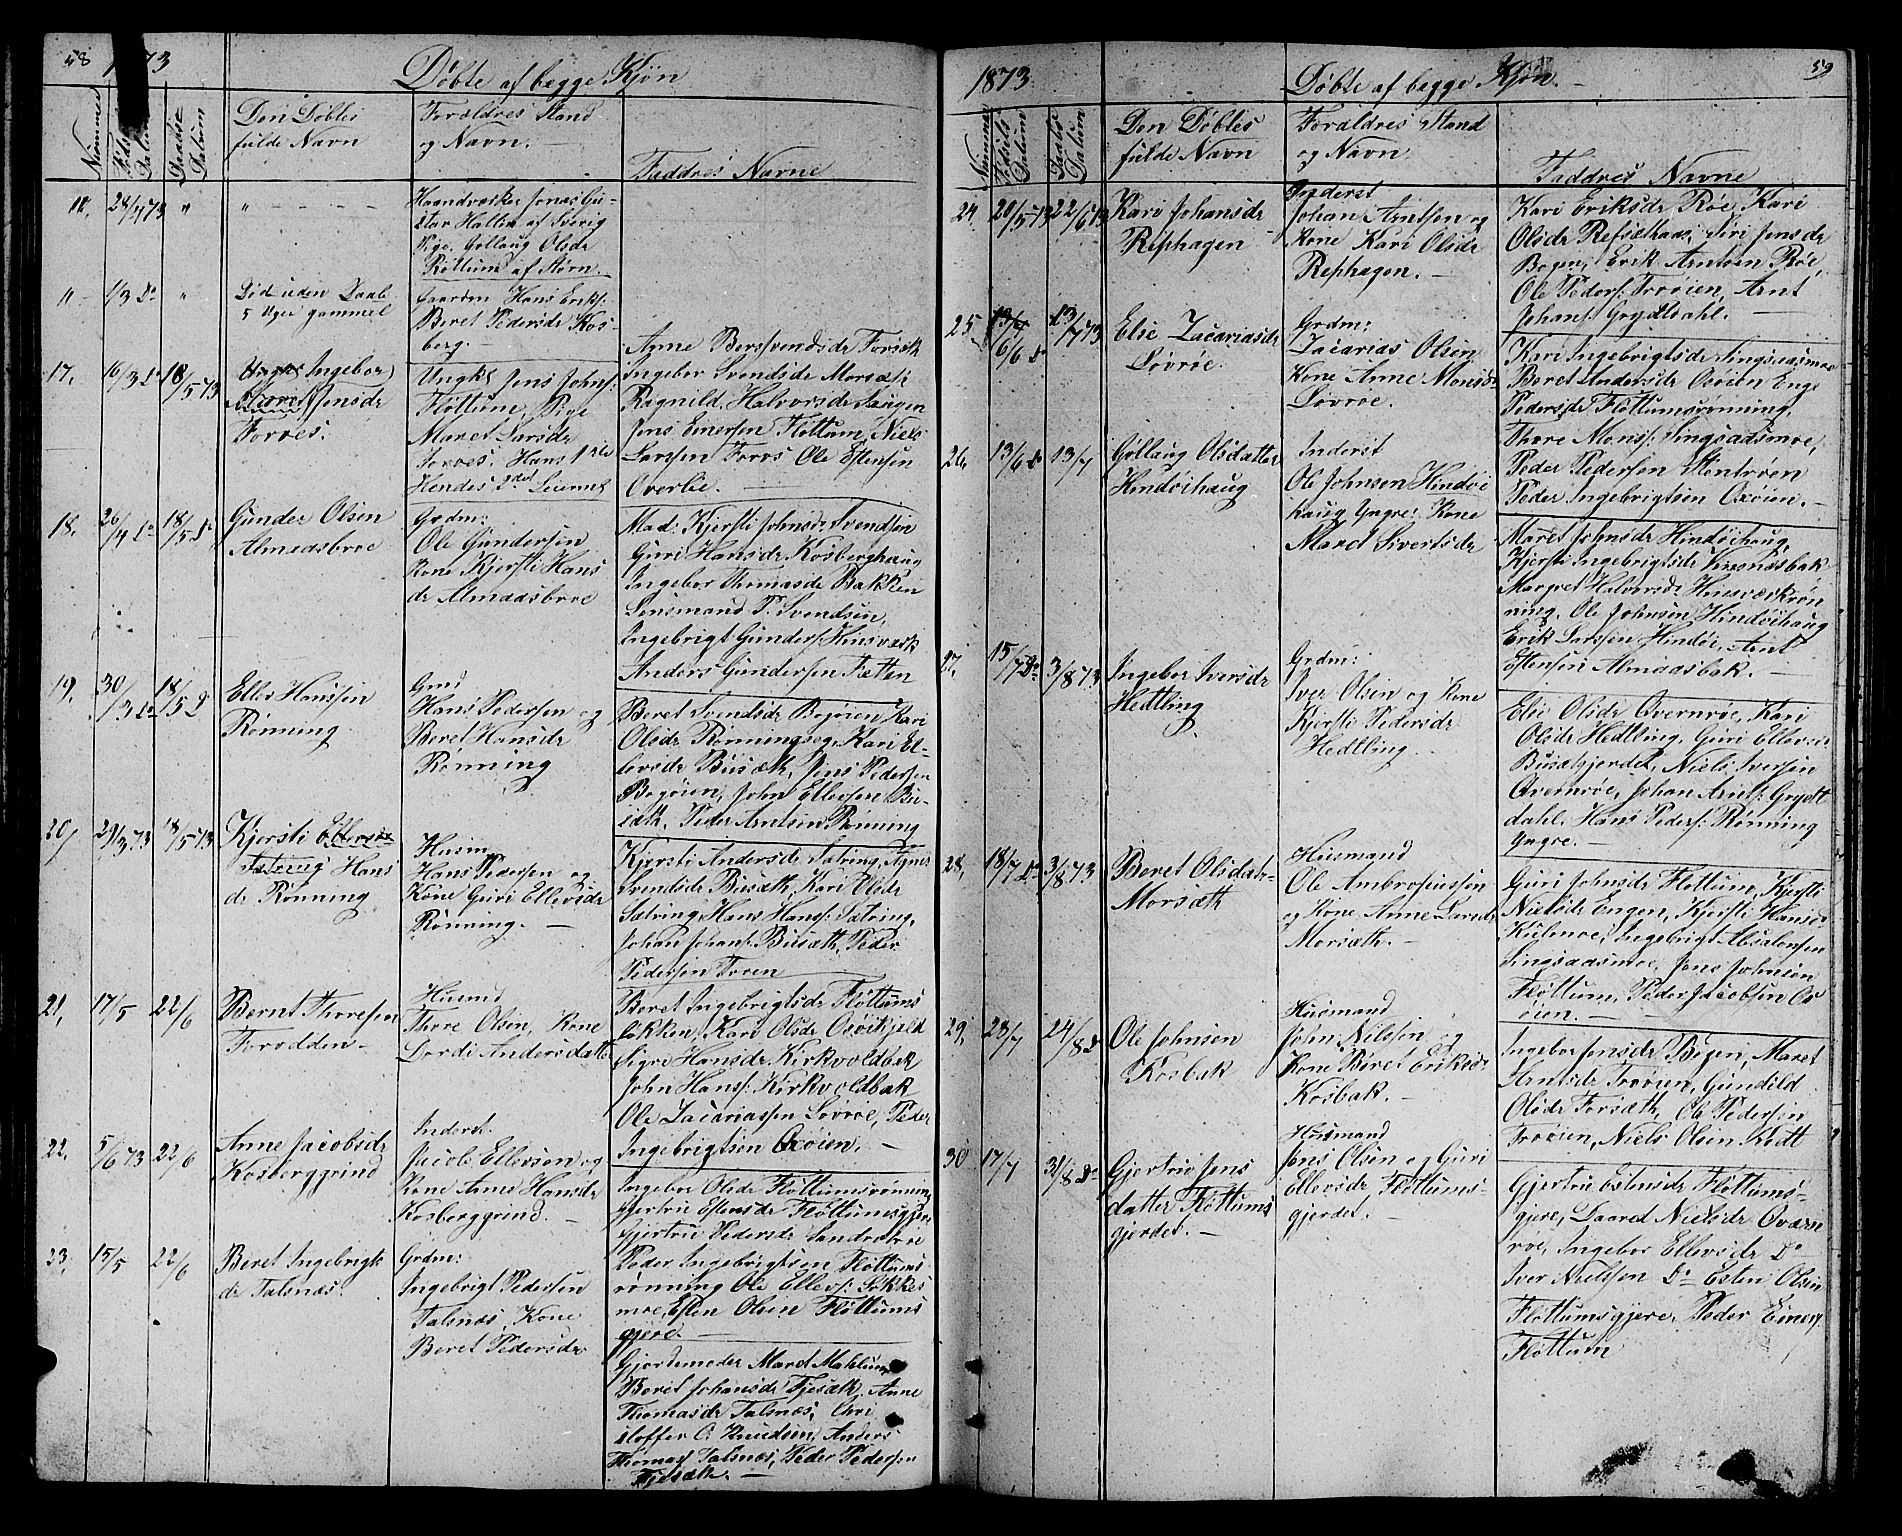 58 1873
Döbte af begge Kjön
Nummer
Föds Datum
Daabs Datum
Den Döbtes
fulde Navn
Forældres Stand
og Navn. -
Faddres Navne
28/4 73 " " - - - -
Haandværker Jonas Gu-
star Hallen af Sverig
Pige. Gollaug Olsdr
Röttum af Störn.
1/3 do "
Död uden Daab
5 Uger gammel
Gaardm Hans Eriks:
Beret Pedersdr Kos-
berg. -
17, 16/3 do 18/5 73
Ingebor
Maret Jensdr
Forves.
Ungkl Jens Johns:
Flöttum, Pige
Maret Larsdr
Forves. Hans 1ste
Hendes 2det Leierml
Anne Bersvendsdr Forsæt
Ingebor Svendsdr Morsæt
Ragnild Halvorsdr Haugen
Jens Emersen Flöttum, Niels
Larssen Forvs Ole Estensen
Overlie. -
18. 26/4 do 18/5 do
Gunder Olsen
Almaasbroe
Grdm:
Ole Gundersen
Kone Kjersti Hans
dr Almaasbroe
Mad: Kjersti Johnsdr Svendsen
Guri Hansdr Kosberghaug
Ingebor Thomasdr Bakken
Lensmand P. Svendsen,
Ingebrigt Gunders: Kinsværk
Anders Gundersen Tætten
19, 30/3 do 18/5 do
Ellev Hanssen
Rönning
Grmd
Hans Pedersen og
Beret Hansdr
Rönning
Beret Svendsdr Bogöien Kari
Olsdr Rönningseg, Kari El-
levsdr Busæth, Jens Pedersen
Bogöien, John Ellevsen Bu-
sæth. Peder Arntsen Rönning
20, 29/3 73 18/5 73
Kjersti Ellevsdr
Sætring Hans
dr Rönning
Husm
Hans Pedersen og
Kone Guri Ellevsdr
Rönning. -
Kjersti Andersdr Sætring, Agnes
Svendsdr Busæth, Kari Olsdr
Sætring, Hans Hans: Sætring,
Johan Johans: Busæth, Peder
Pedersen Troen
21, 17/5 22/6
Bernt Thoresen
Forodden -
Husmd
Thore Olsen, Kone
Dordi Andersdatte
Beret Ingebrigtsdr Flöttums
lökken, Kari Olsdr Oxöikjeld
Sigre Hansdr Kirkvoldbak
John Hans: Kirkvoldbak
Ole Zacariassen Lövröe, Peder
Ingebrigtsen Oxöien. -
22, 5/6 73 22/6
Anne Jacobsdr
Kosberggrind
Inderst.
Jacob Ellevsen og
Kone Anne Hansdr
Kosberggrind. -
Ingebor Olsdr Flöttumsrönning
Gjertru Estensdr Flöttumsgjere
Gjertru Pedersdr Sandrabroe
Peder Ingebrigtsen Flöttums
rönning Ole Ellevs: Løkkes
moe, Esten Olsen Flöttums
gjere. -
23, 15/5 22/6
Beret Ingebrigts
dr Talsnæs.
Grdm:
Ingebrigt Pedersen
Talsnæs, Kone
Beret Pedersdr
Gjordemoder Maret Mohlum,
Beret Johansdr Fjesæth, Anne
Thomasdr Talsnæs, Chri
stoffer O. Knudsen, Anders
Thomas: Talsnæs, Peder Pedersen
Fjesæth. -
1873.
Döbte af begge Kjön. -
59
Nummer
Födsels Datum
Daabs Datum
Den Döbtes
fulde Navn
Forældres Stand
og Navn.
Faddres Navne
24. 20/5 73 22/6 73
Kari Johansdr
Rephagen
Inderst
Johan Arntsen og
Kone Kari Olsdr
Rephagen. -
Kari Eriksdr Röe, Kari
Olsdr Refsethaas, Siri Jensdr
Bogen, Erik Arntsen Röe,
Ole Peders: Troöien, Arnt
Johans: Grydtdahl. -
25. 6/6 do 13/7 73
Else Zacariasdr
Lövröe.
Grdm:
Zacarias Olsen
Kone Anne Monsdr
Lövröe.
Kari Ingebrigtsdr Singsaasmoe
Beret Andersdr Oxöien Enge
Pedersdr Flöttumsrönning,
Thore Mons: Singsaasmoe,
Peder Pedersen Stentröen
Peder Ingebrigtsen Oxöien. -
26, 13/6 do 13/7
Göllaug Olsdatter
Hindöihaug
Inderst
Ole Johnsen Hindöi
haug Yngre, Kone
Maret Sivertsdr
Maret Johnsdr Hindöihaug
Kjersti Ingebrigtsdr Kræsnæsbak
Margret Halvorsdr Hinsværkrön
ning, Ole Johnsen Hindöihaug
Erik Larssen Hindöi, Arnt
Estensen Almaasbak. -
27. 15/7 do 3/8 73
Ingebor Iversdr
Hedtling
Grdm:
Iver Olsen og Kone
Kjersti Pedersdr
Hedtling.
Else Olsdr Overnröe, Kari
Olsdr Hedtling, Guri Ellevsdr
Busætgjerdet, Niels Iversen
Overnröe, Johan Arnts: Grydt
dahl. Hans Peders: Rönning
Yngre. -
28, 18/7 do 3/8 73
Beret Olsdatr
Morsæth
Husmand
Ole Ambrosiussen
og Kone Anne Larsdr
Morsæth. -
Guri Johnsdr Flöttum, Kjersti
Nielsdr Engen, Kjersti Hansdr
Kulmoe, Ingebrigt Absalonsen
Singsaasmoe, Jens Johnsen
Flöttum, Peder Jacobsen Ox
öien. -
29, 23/7 24/8 do
Ole Johnsen
Kosbak
Husmand
John Nilssen og
Kone Beret Eriksdr
Kosbak. -
Ingebor Jensdr Bogen, Maret
Arntsdr Troöien, Gunild
Olsdr Forsæth, Ole Pedersen
Troöien, Niels Olsen Kodt
30 17/7 31/8 do
Gjertru Jens
datter Flöttums
gjerdet. -
Husmand
Jens Olsen og Guri
Ellevsdr Flöttums-
gjerdet. -
Gjertru Estensdr Flöttums-
gjere, Laaret Nielsdr Overn
röe, Ingebor Ellevsdr do
Iver Nielssen do Esten Olsen
Flöttumsgjere, Peder Emers:
Flöttum